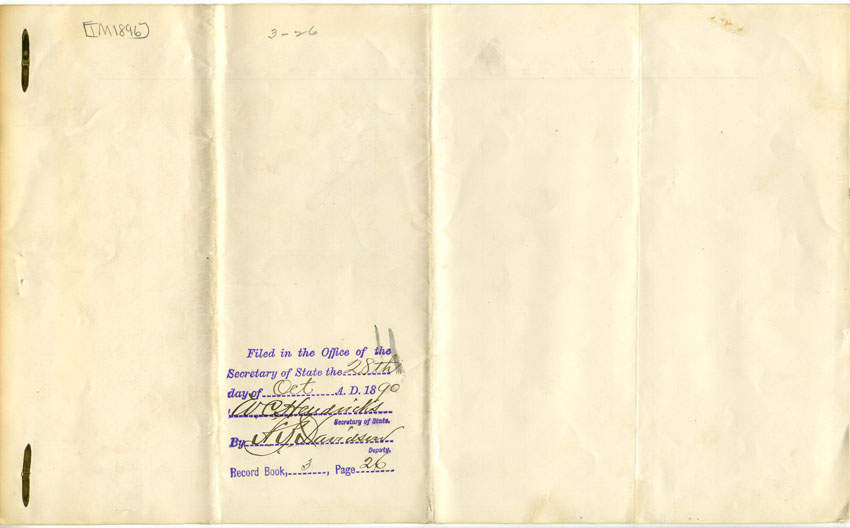 [TM1896]
3-26
Filed in the Office of the
Secretary of State the 28th
day of Oct A. D. 1890
W C Hendricks
Secretary of State.
By Davidson
Deputy.
Record Book, 3, Page 26